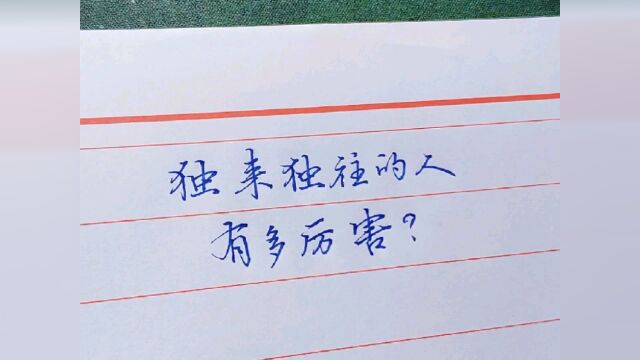 独来独往的人
有多厉害?